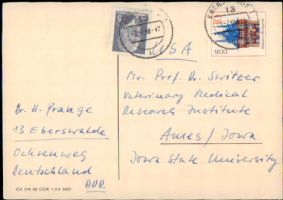 EBERSWALDE 1
USA
Mr. Prof. Dr. Switzer
Veterinary Medical
Research Institute
Ames / Iowa
Iowa State University
Dr. H. Prange
13 Eberswalde
Ochsenweg
Deutschland
DDR